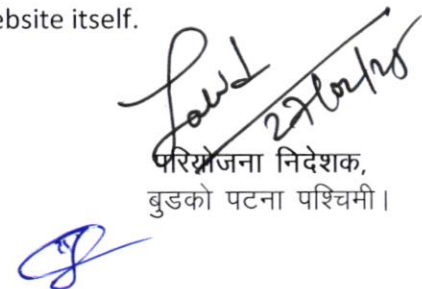 ebsite itself.
27/02/25
परियोजना निदेशक,
बुडको पटना पश्चिमी।